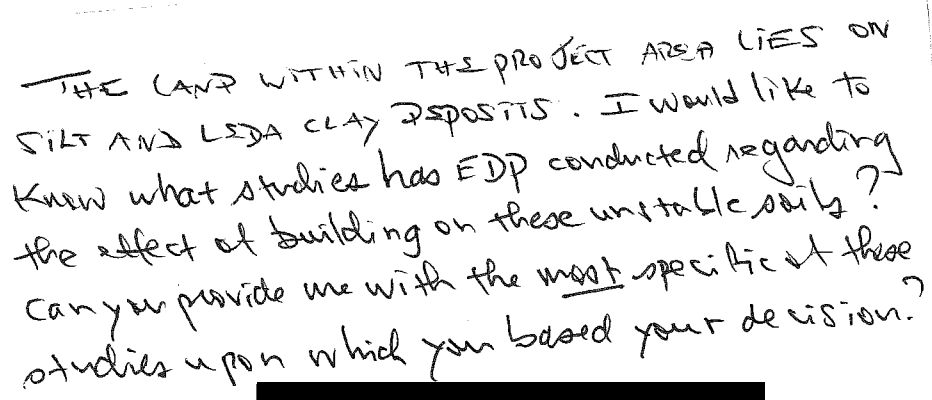 THE LAND WITHIN THE PROJECT AREA LIES ON
SILT AND LEDA CLAY DEPOSITS. I would like to
Know what studies has EDP conducted regarding
the effect of building on these unstable soils?
Can you provide me with the most specific of these
studies upon which you based your decision?